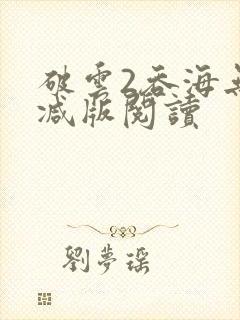 破雲2吞海無
減版閱讀
劉夢瑶